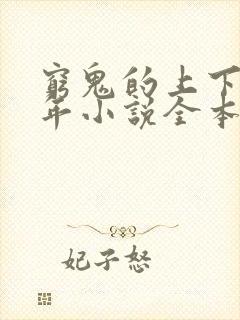 窮鬼的上下
年小說全本
妃子怒